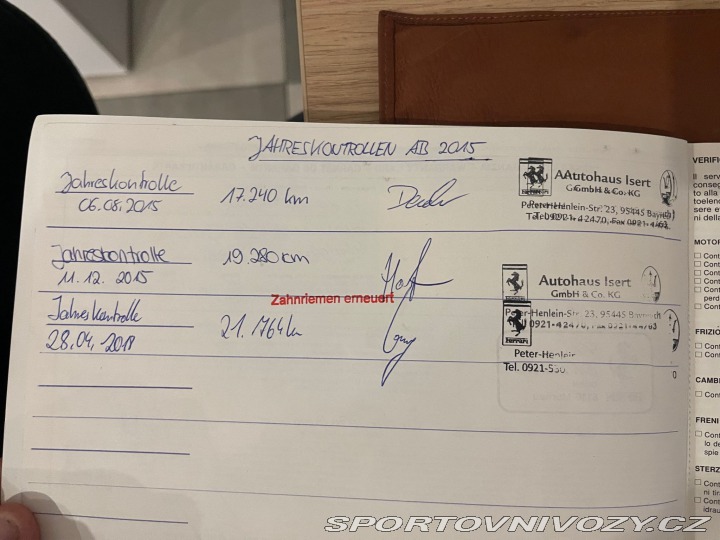 JAHRESKONTROLLEN AB 2015
Jahreskontrolle 17.240 km
06.08.2015
Autohaus Isert
GmbH & Co. KG
Peter-Henlein-Str. 23, 95445 Bayreuth
Tel. 0921-42470, Fax 0921-
Jahreskontrolle 19.280 km
11.12.2015
Zahnriemen erneuert
Autohaus Isert
GmbH & Co. KG
Peter-Henlein-Str. 23, 95445 Bayreuth
0921-42470,
Jahreskontrolle
28.04.
Ferrari
Peter-Henlein
Tel. 0921-530
VERIFI
Il serv
conseg
to alla
toelenc
sere e
ni della
MOTOR
Cont
Cont
Cont
Cont
Cont
perd
Cont
FRIZIO
Cont
CAMBI
Cont
FRENI
Cont
lo de
spie
STERZ
Cont
ni tir
Cont
idrau
SPORTOVNIVOZY.CZ